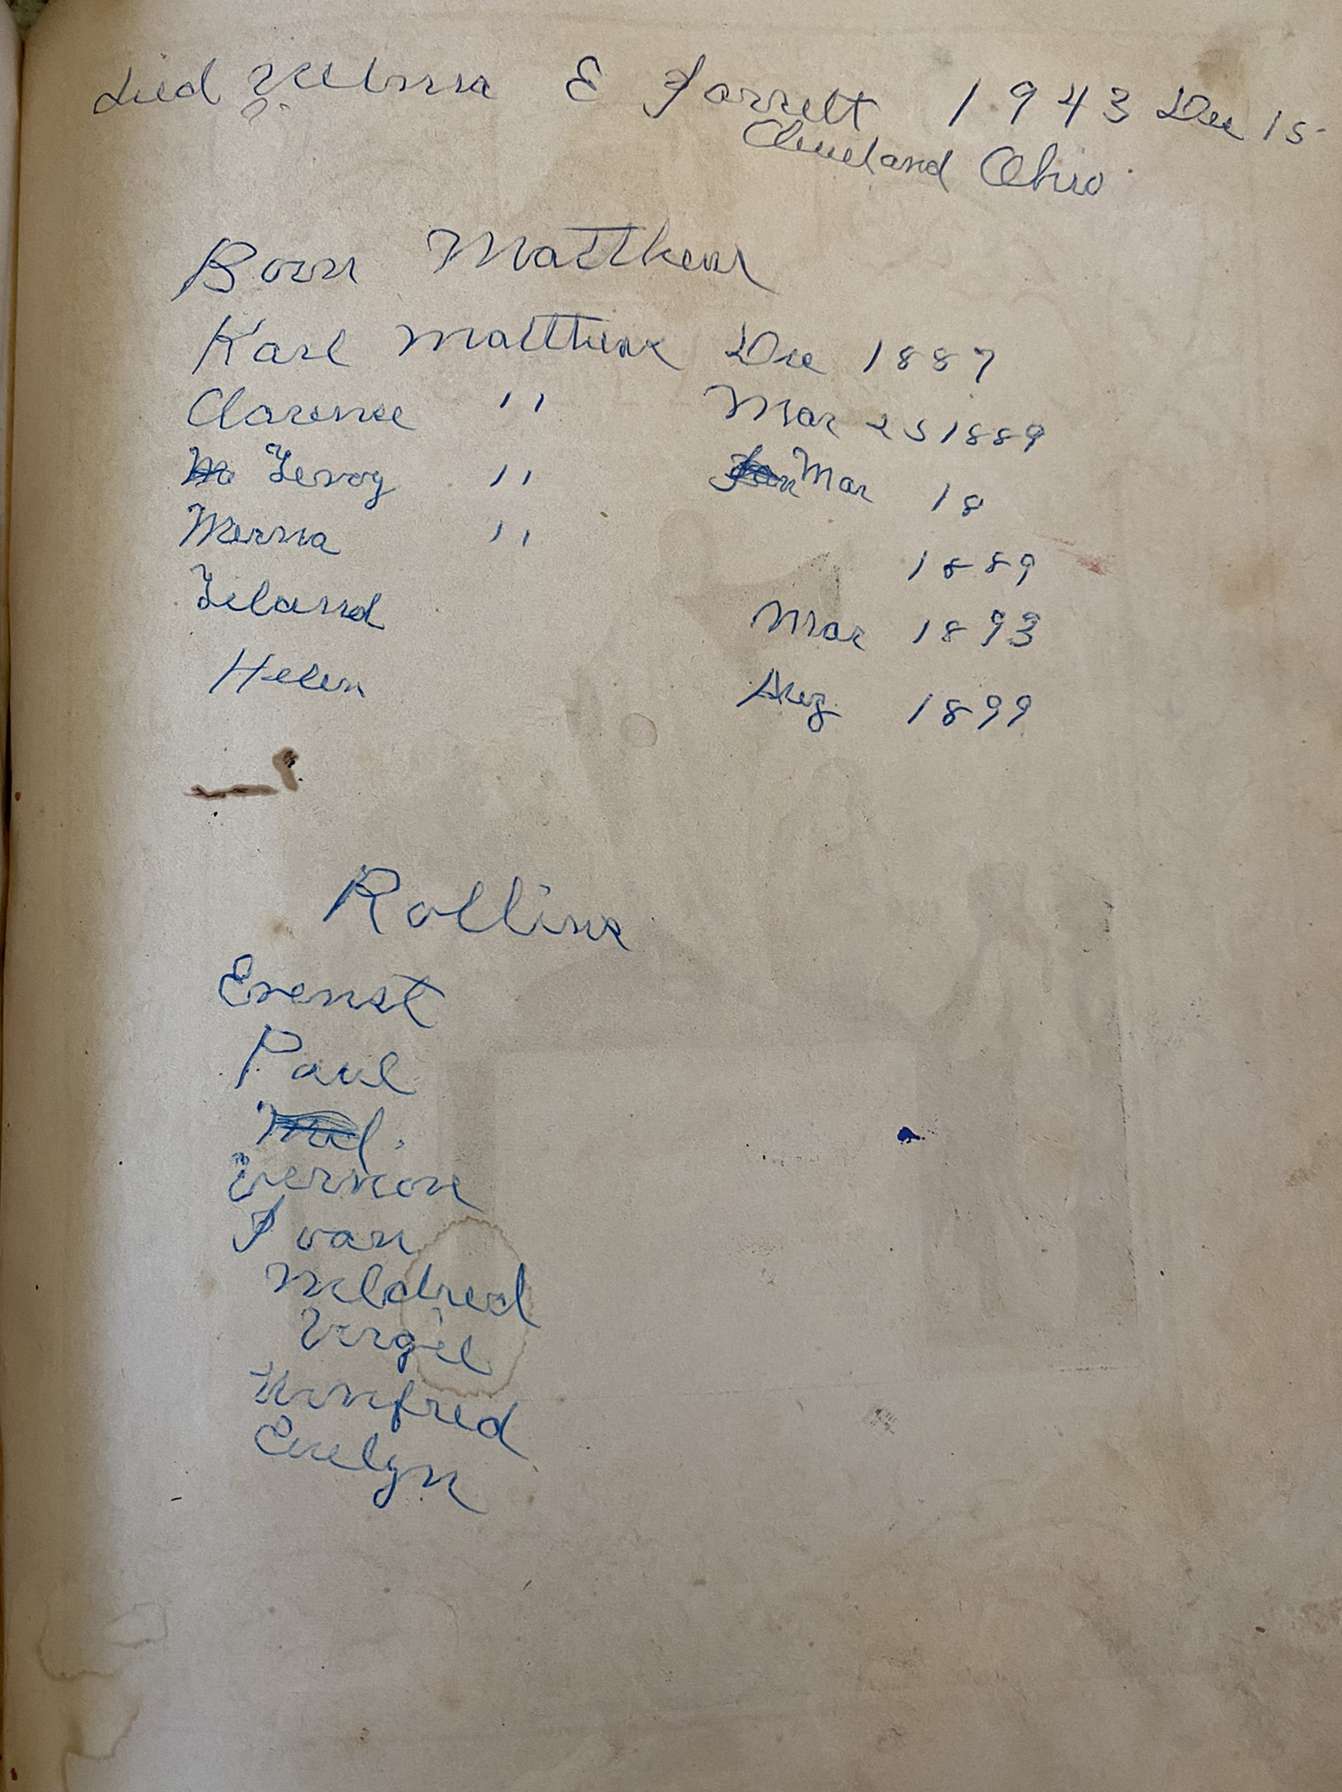 died Velma E Garrett 1943 Dec 15
Cleveland Ohio
Born Matthews
Karl Matthews Dec 1887
Clarence " Mar 25 1889
Leroy " Mar 18
Merna " 1889
Leland Mar 1893
Helen Aug 1899
Rollins
Erenst
Paul
Vernon
Ivan
Mildred
Virgil
Winifred
Evelyn